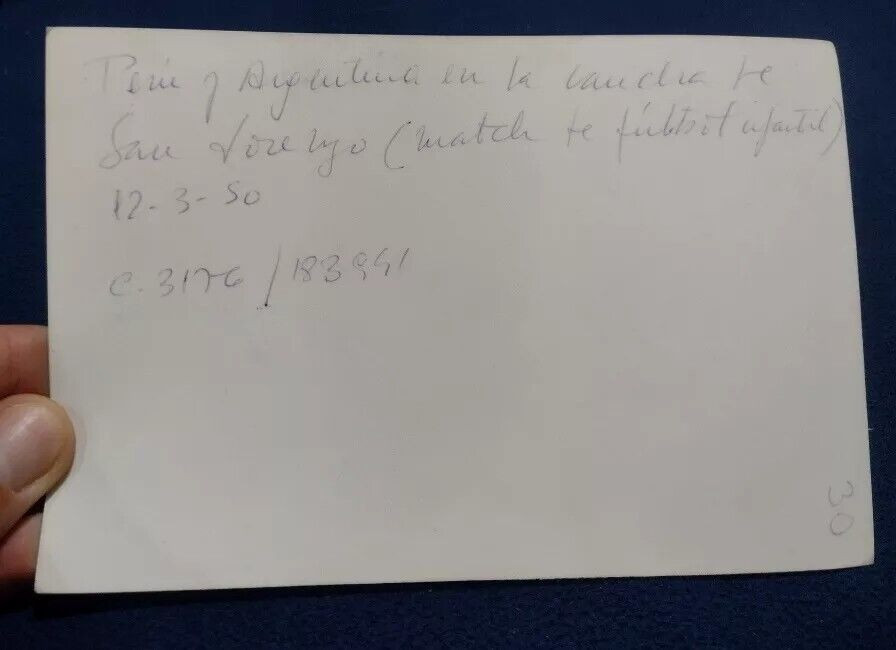 Perú y Argentina en la cancha de
San Lorenzo (match de fútbol infantil)
12-3-50
C. 3176 / 183991
30